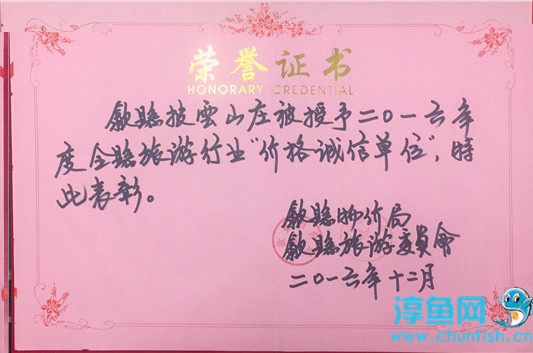 荣誉证书
HONORARY CREDENTIAL
歙县披雲山庄被授予二〇一六年
度全县旅游行业“价格诚信单位”，特
此表彰。
歙县物价局
歙县旅游委員會
二〇一六年十二月
淳鱼网
www.chunfish.cn